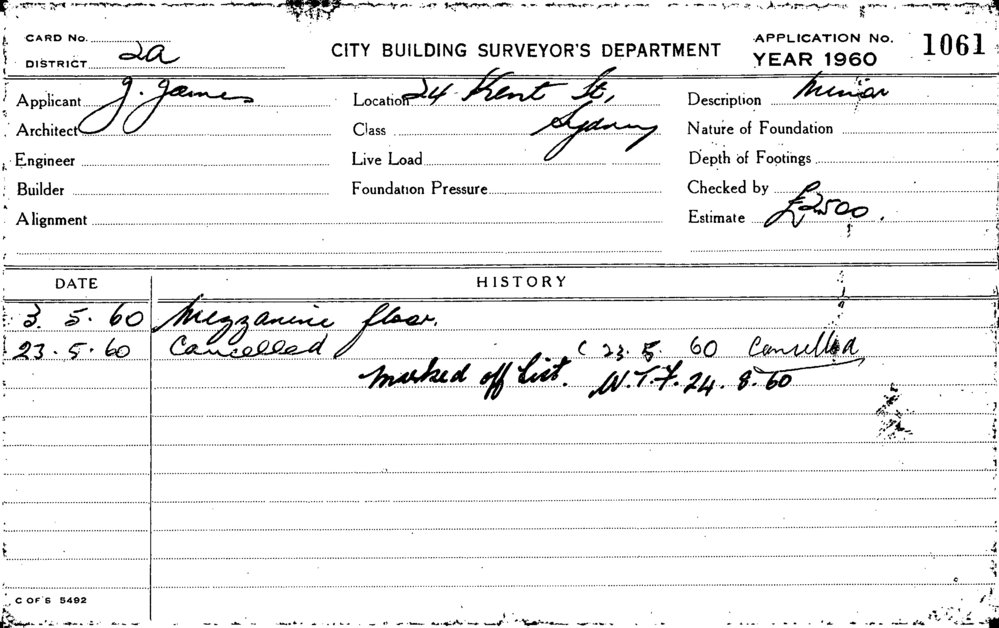 CARD No.
DISTRICT 2a
CITY BUILDING SURVEYOR'S DEPARTMENT
APPLICATION No. 1061
YEAR 1960
Applicant J. James
Location 24 Kent St,
Description Minor
Architect
Class Sydney
Nature of Foundation
Engineer
Live Load
Depth of Footings
Builder
Foundation Pressure
Checked by
Alignment
Estimate £2500.
DATE
HISTORY
3. 5. 60 Mezzanine floor.
23. 5. 60 Cancelled ( 23. 5. 60 Cancelled
Marked off List. W.T.F. 24. 8. 60
C OF S 5492